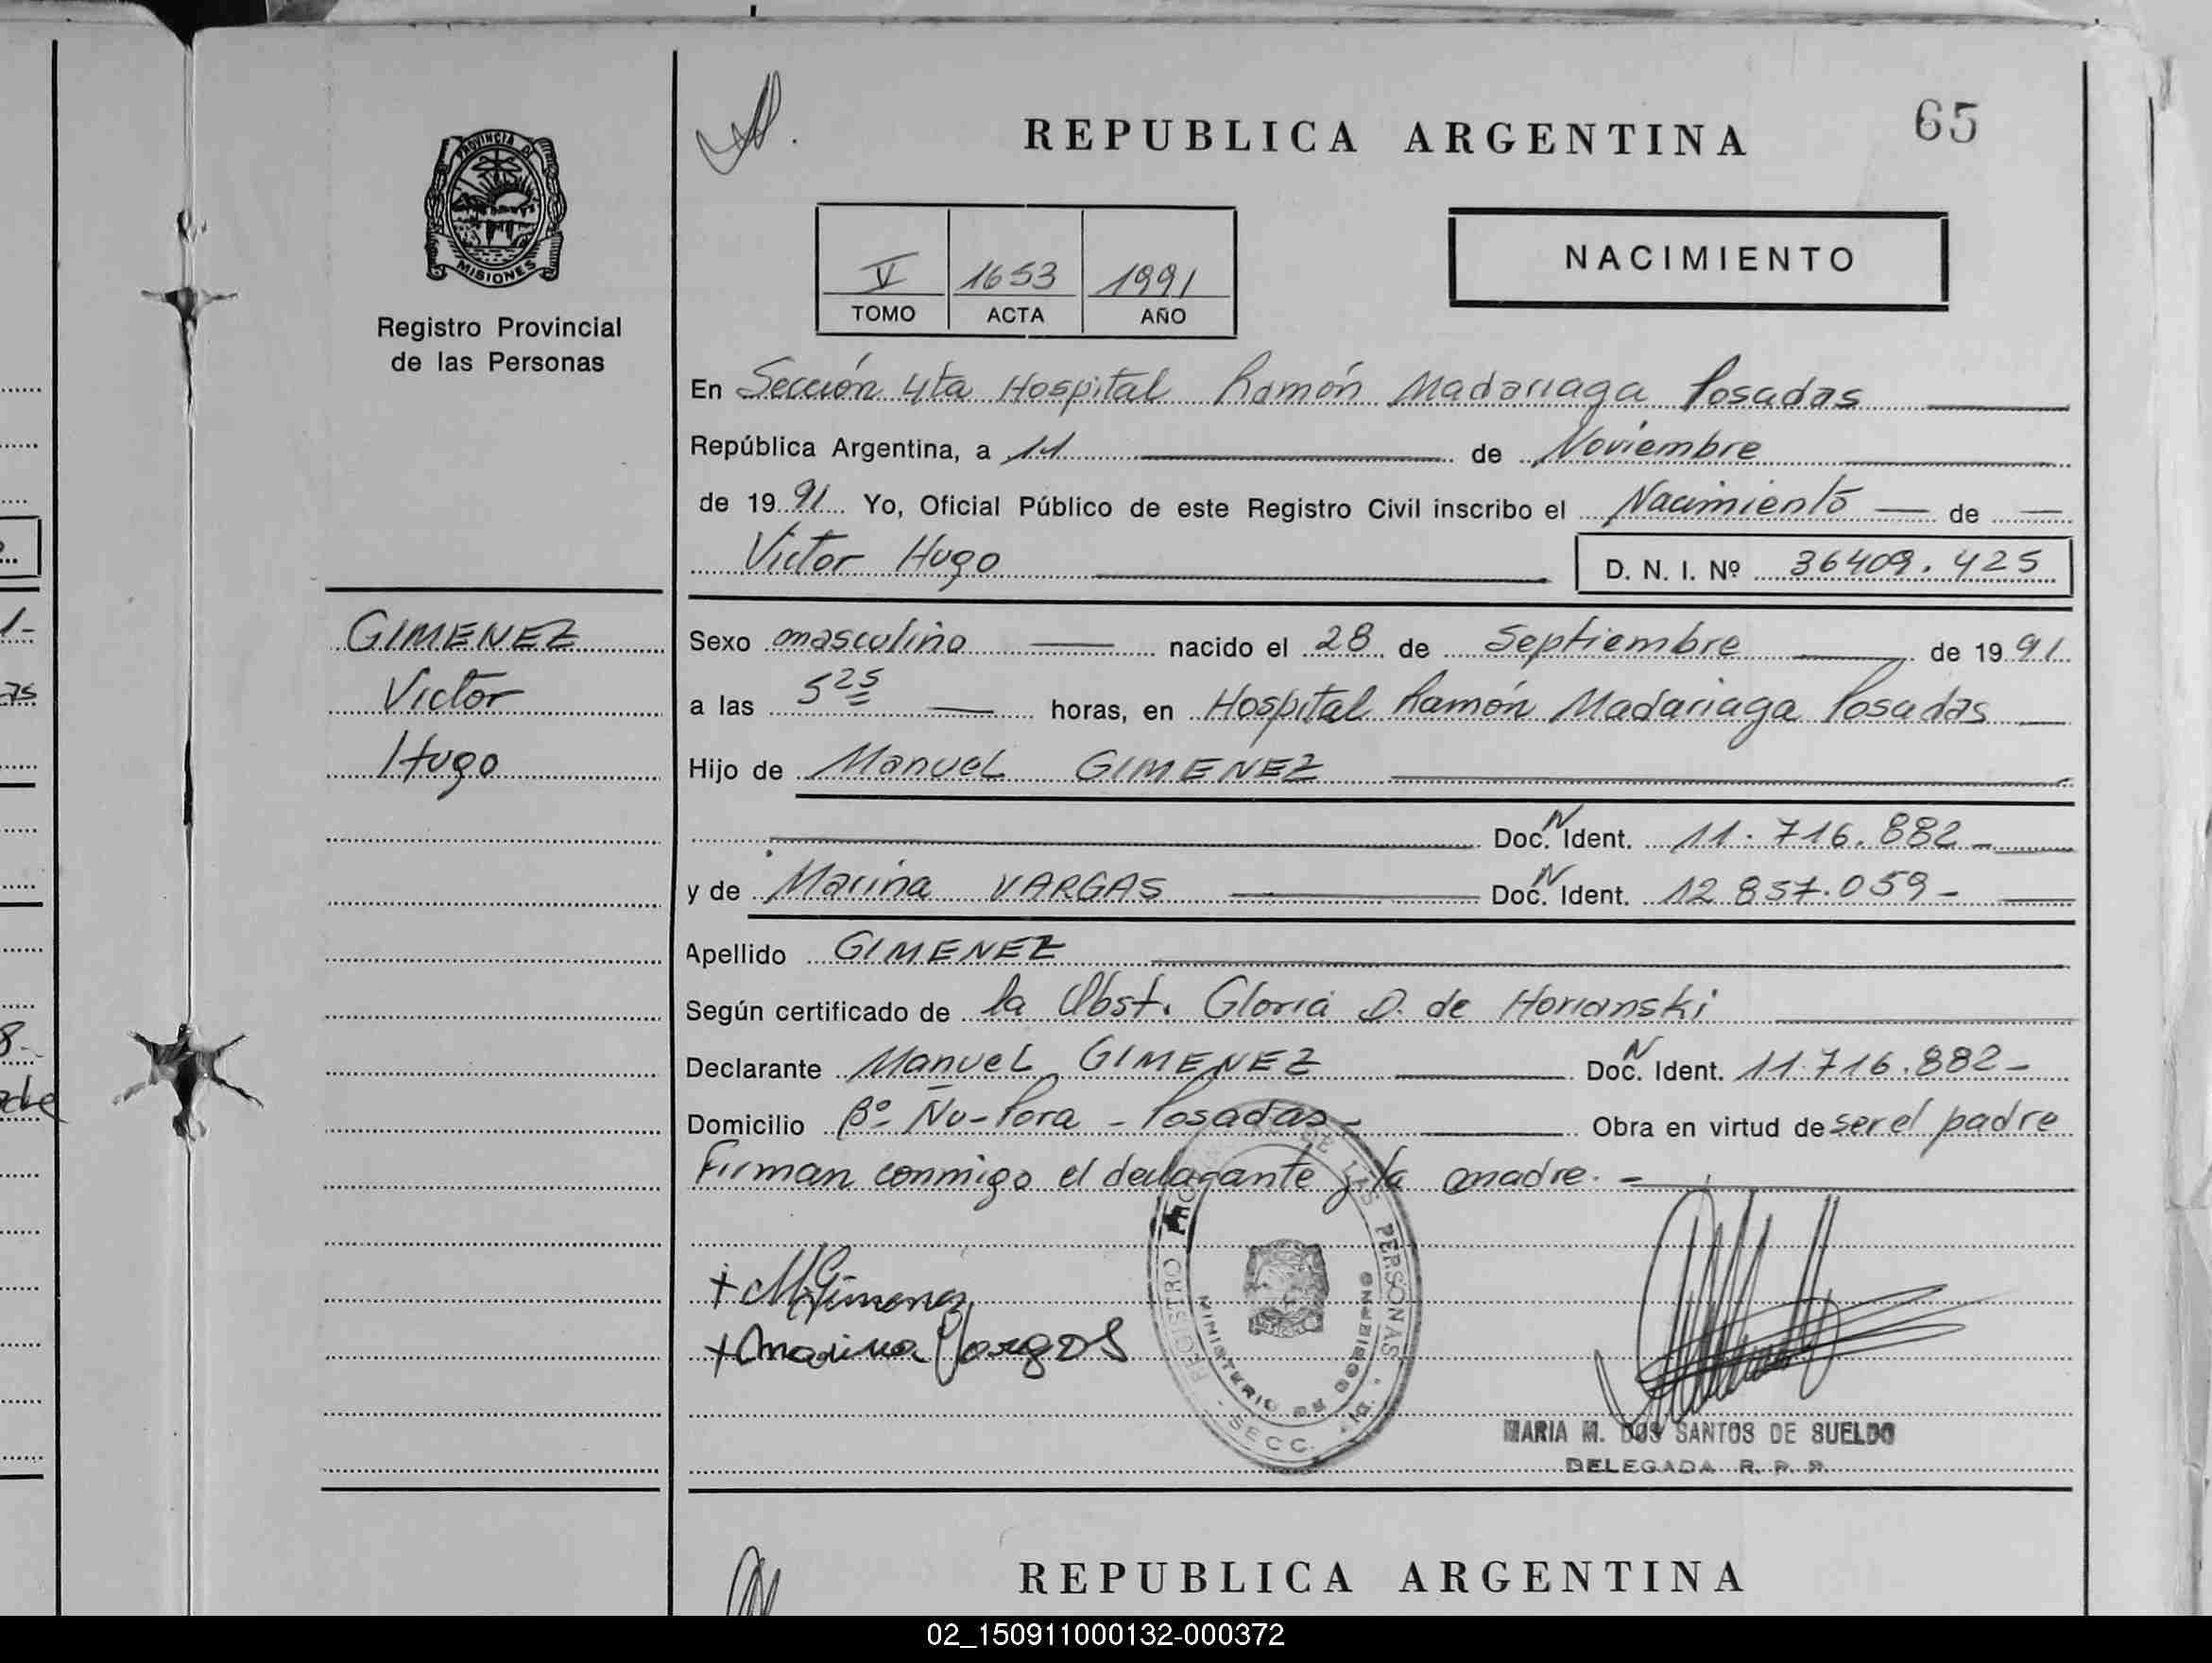 65
REPUBLICA ARGENTINA
PROVINCIA D
MISIONES
Registro Provincial
de las Personas
V 1653 1991
TOMO ACTA AÑO
NACIMIENTO
En Sección 4ta Hospital Ramón Madariaga Posadas
República Argentina, a 11 de Noviembre
de 1991 Yo, Oficial Público de este Registro Civil inscribo el Nacimiento de
Victor Hugo D. N. I. Nº 36409.425
GIMENEZ
Victor
Hugo
Sexo masculino nacido el 28 de Septiembre de 1991
a las 5 25 horas, en Hospital Ramón Madariaga Posadas
Hijo de Manuel GIMENEZ
Doc. N Ident. 11.716.882-
y de Marina VARGAS Doc. N Ident. 12 857.059-
Apellido GIMENEZ
Según certificado de la Obst. Gloria D. de Horianski
Declarante Manuel GIMENEZ Doc. N Ident. 11.716.882-
Domicilio Bº Ñu-Pora - Posadas - Obra en virtud de ser el padre
Firman conmigo el declarante y la madre. -
+ M Gimenez
+ Marina Vargas
REGISTRO DE LAS PERSONAS
MINISTERIO DE GOBIERNO
SECC.
MARIA M. DOS SANTOS DE SUELDO
DELEGADA R. P. P.
REPUBLICA ARGENTINA
02_150911000132-000372